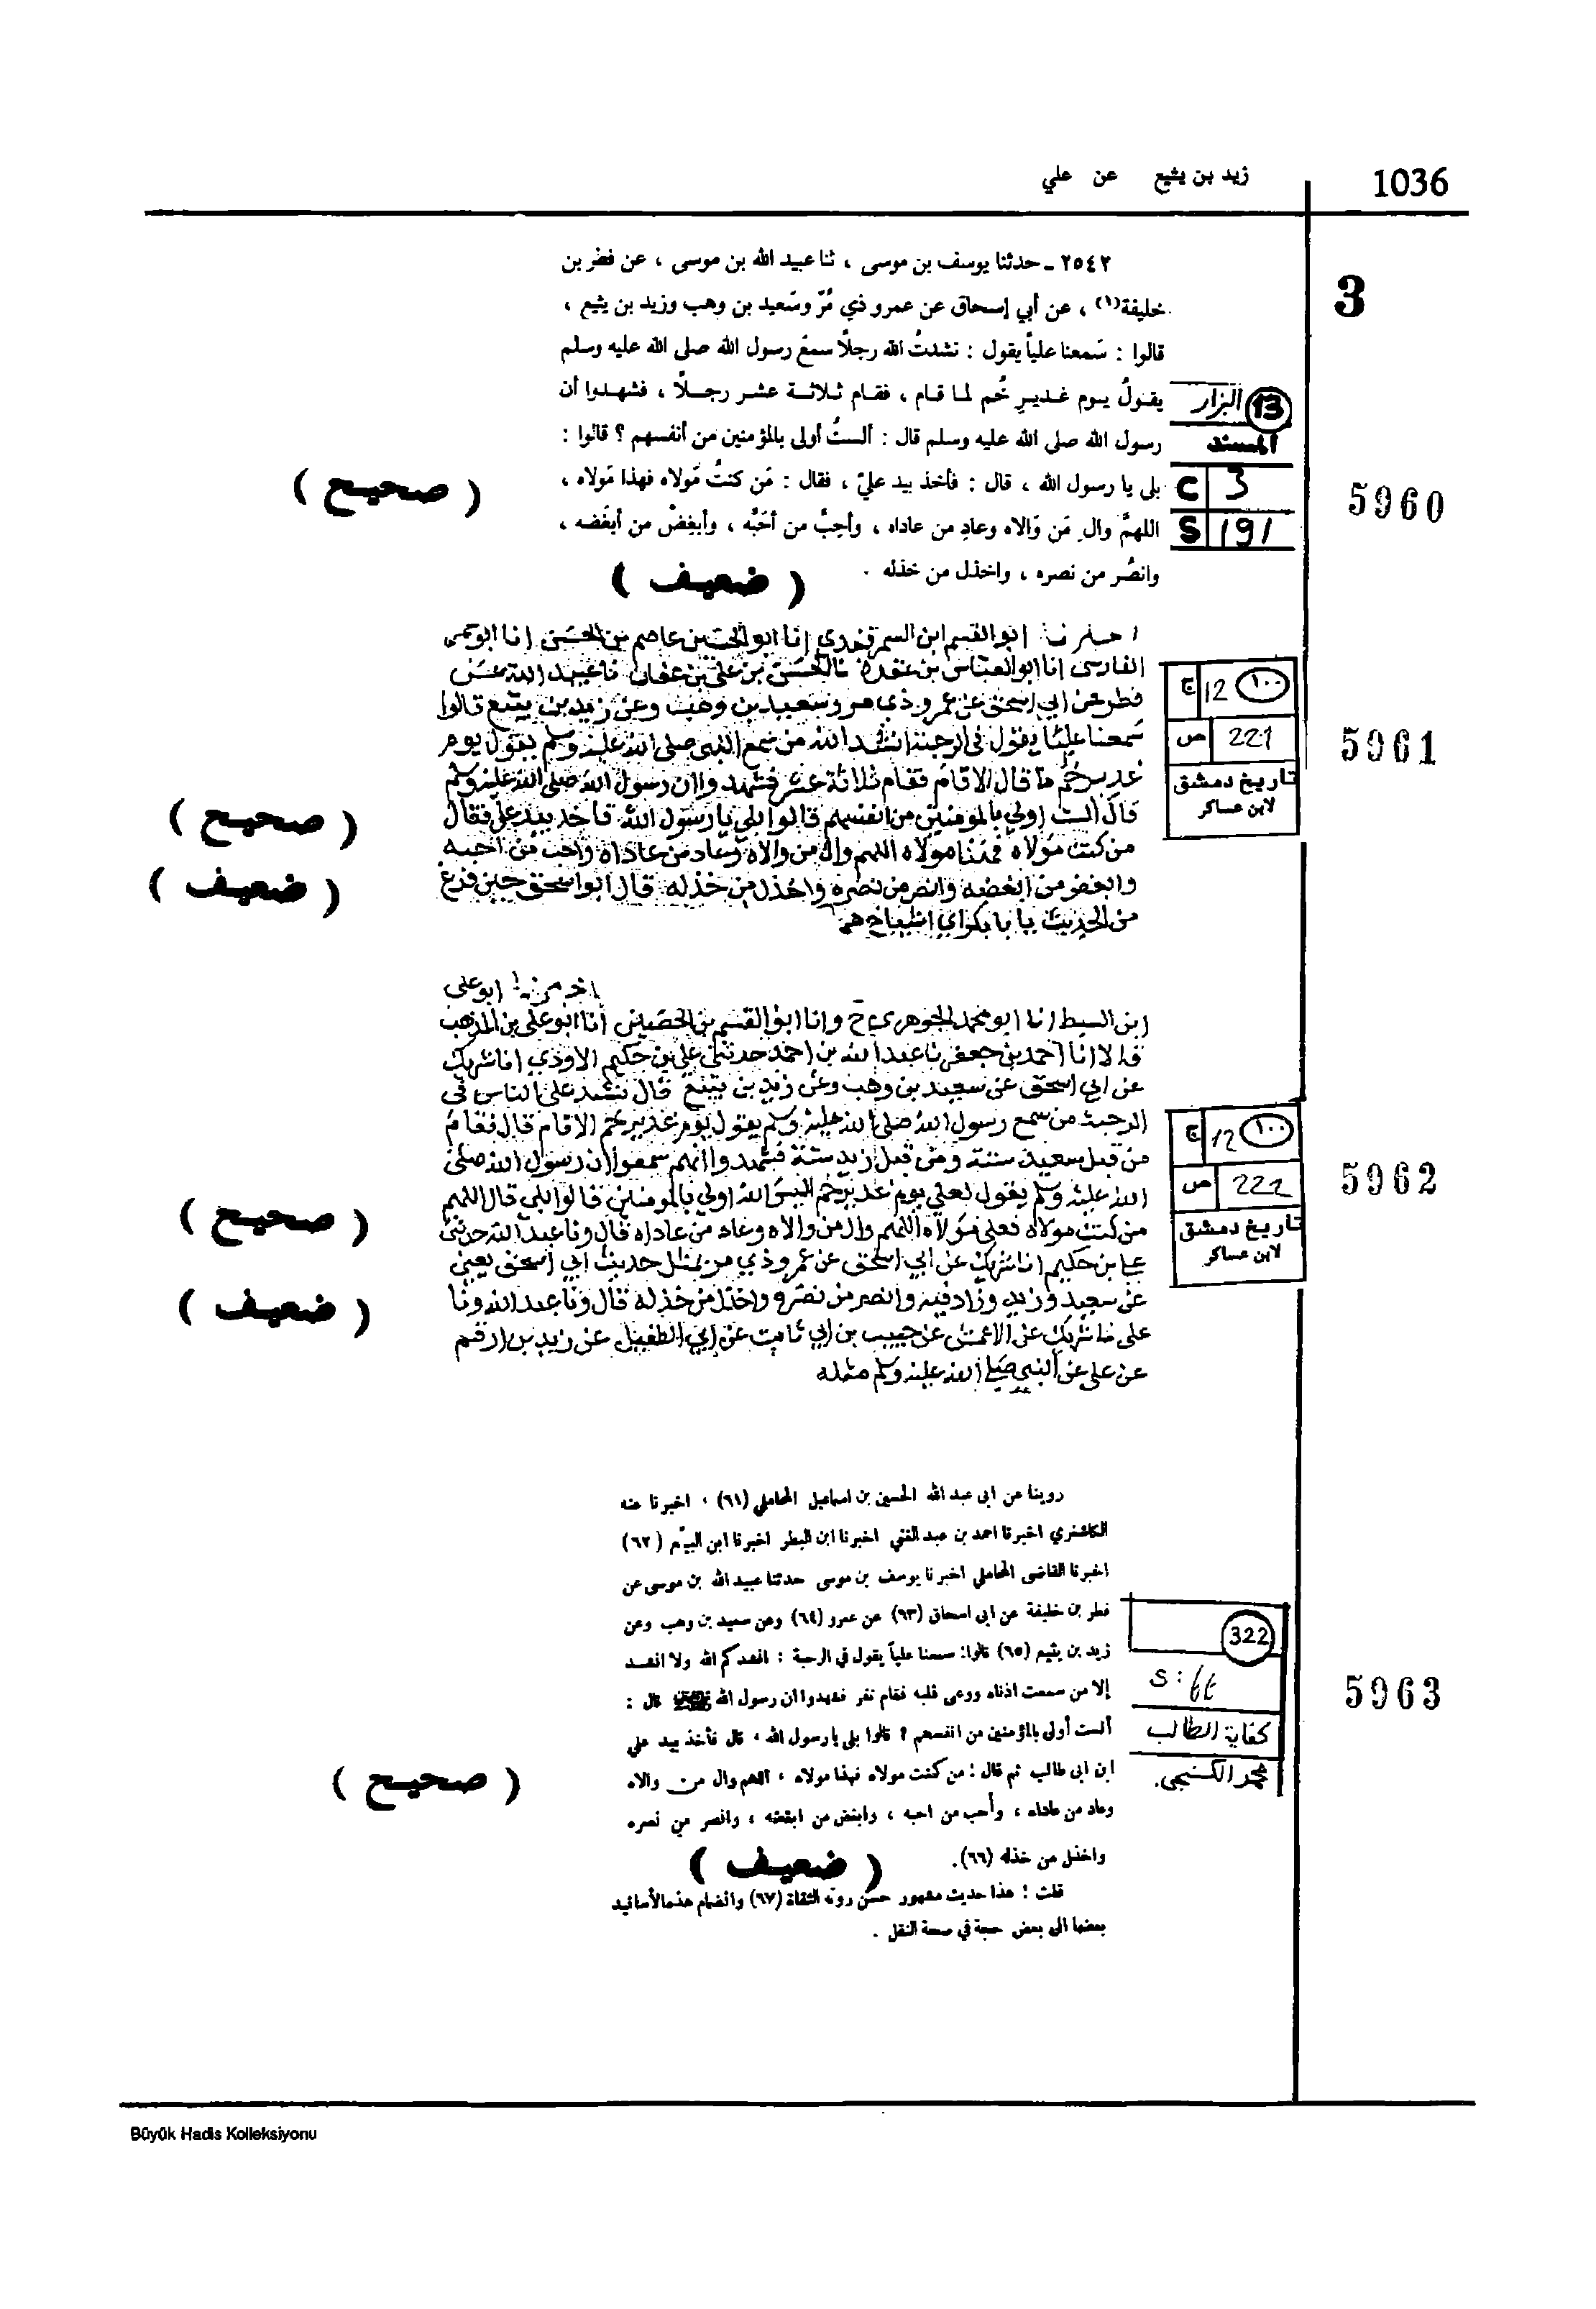 1036
زيد بن يثيع عن علي
3
٢٥٤٢ ـ حدثنا يوسف بن موسى ، ثنا عبيد الله بن موسى ، عن فطر بن
خليفة(١) ، عن أبي إسحاق عن عمرو ذي مُرّ وسَعيد بن وهب وزيد بن يثيع ،
قالوا : سَمعنا علياً يقول : نشدتُ الله رجلًا سمعَ رسول الله صلى الله عليه وسلم
يقولُ يوم غديرِ خُم لما قام ، فقام ثلاثة عشر رجلًا ، فشهدوا أن
رسول الله صلى الله عليه وسلم قال : ألستُ أولى بالمؤمنين من أنفسهم ؟ قالوا :
بلى يا رسول الله ، قال : فأخذ بيد عليّ ، فقال : مَن كنتُ مَولاه فهذا مَولاه ،
اللهمَّ والِ مَن وَالاه وعادِ من عاداه ، وأحِبَّ من أحَبَّه ، وأبغِضْ من أبغَضه ،
وانصُر من نصره ، واخذل من خذله .
( صحيح )
( ضعيف )
13 البزار
المسند
C 3
S 191
5960
ابو القسم ابن السمرقندي انا ابو الحسين عاصم بن الحسن انا ابو عمر
الفارسى انا ابو العباس بن عقدة نا الحسن بن على بن عفان نا عبيد الله عن
فطر عن ابي اسحق عن عمرو ذي مر وسعيد بن وهب وعن زيد بن يثيع قالوا
سمعنا عليا يقول في الرحبة انشد الله من سمع النبي صلى الله عليه وسلم يقول يوم
غدير خم ما قال الا قام فقام ثلاثة عشر فشهدوا ان رسول الله صلى الله عليه وسلم
قال الست اولي بالمومنين من انفسهم قالوا بلي يا رسول الله فاخذ بيد علي فقال
من كنت مولاه فهذا مولاه اللهم وال من والاه وعاد من عاداه واحب من احبه
وابغض من ابغضه وانصر من نصره واخذل من خذله قال ابو اسحق حين فرغ
من الحديث يا با بكر اي اشياخ هم
( صحيح )
( ضعيف )
١٠٠ 12 ج
221 ص
تاريخ دمشق
لابن عساكر
5961
ابو على
ابن السبط انا ابو محمد الجوهري ح وانا ابو القسم بن الحصين انا ابو على بن المذهب
قالا انا احمد بن جعفر نا عبد الله بن احمد حدثني علي بن حكيم الاودي انا شريك
عن ابي اسحق عن سعيد بن وهب وعن زيد بن يثيع قال نشد على الناس في
الرحبة من سمع رسول الله صلى الله عليه وسلم يقول يوم غدير خم الا قام قال فقام
من قبل سعيد ستة ومن قبل زيد ستة فشهدوا انهم سمعوا ان رسول الله صلى
الله عليه وسلم يقول لعلي يوم غدير خم اليس الله اولي بالمومنين قالوا بلي قال اللهم
من كنت مولاه فعلي مولاه اللهم وال من والاه وعاد من عاداه قال ونا عبد الله حدثني
علي بن حكيم انا شريك عن ابي اسحق عن عمرو ذي مر بمثل حديث ابي اسحق يعني
عن سعيد وزيد وزاد فيه وانصر من نصره واخذل من خذله قال ونا عبد الله ونا
على نا شريك عن الاعمش عن حبيب بن ابي ثابت عن ابي الطفيل عن زيد بن ارقم
عن علي عن النبي صلى الله عليه وسلم مثله
( صحيح )
( ضعيف )
١٠٠ 12 ج
222 ص
تاريخ دمشق
لابن عساكر
5962
روينا عن ابى عبد الله الحسين بن اسماعيل المحاملي (٦١) ، اخبرنا عنه
الكاشغري اخبرنا احمد بن عبد الغني اخبرنا ابن البطر اخبرنا ابن البيّع (٦٢)
اخبرنا القاضى المحاملي اخبرنا يوسف بن موسى حدثنا عبيد الله بن موسى عن
فطر بن خليفة عن ابى اسحاق (٦٣) عن عمرو (٦٤) وعن سعيد بن وهب وعن
زيد بن يثيع (٦٥) قالوا: سمعنا علياً يقول في الرحبة : انشدكم الله ولا انشد
إلا من سمعت اذناه ووعى قلبه فقام نفر فشهدوا ان رسول الله قال :
ألست أولى بالمؤمنين من انفسهم ؟ قالوا بلى يا رسول الله ، قال فأخذ بيد علي
ابن ابى طالب ثم قال : من كنت مولاه فهذا مولاه ، اللهم وال من والاه
وعاد من عاداه ، وأحب من احبه ، وابغض من ابغضه ، وانصر من نصره
واخذل من خذله (٦٦).
قلت : هذا حديث مشهور حسن روته الثقاة (٦٧) وانضمام هذه الأسانيد
بعضها الى بعض حجة في صحة النقل .
( صحيح )
( ضعيف )
322
S : 66
كفاية الطالب
محمد الكنجي.
5963
Büyük Hadis Kolleksiyonu